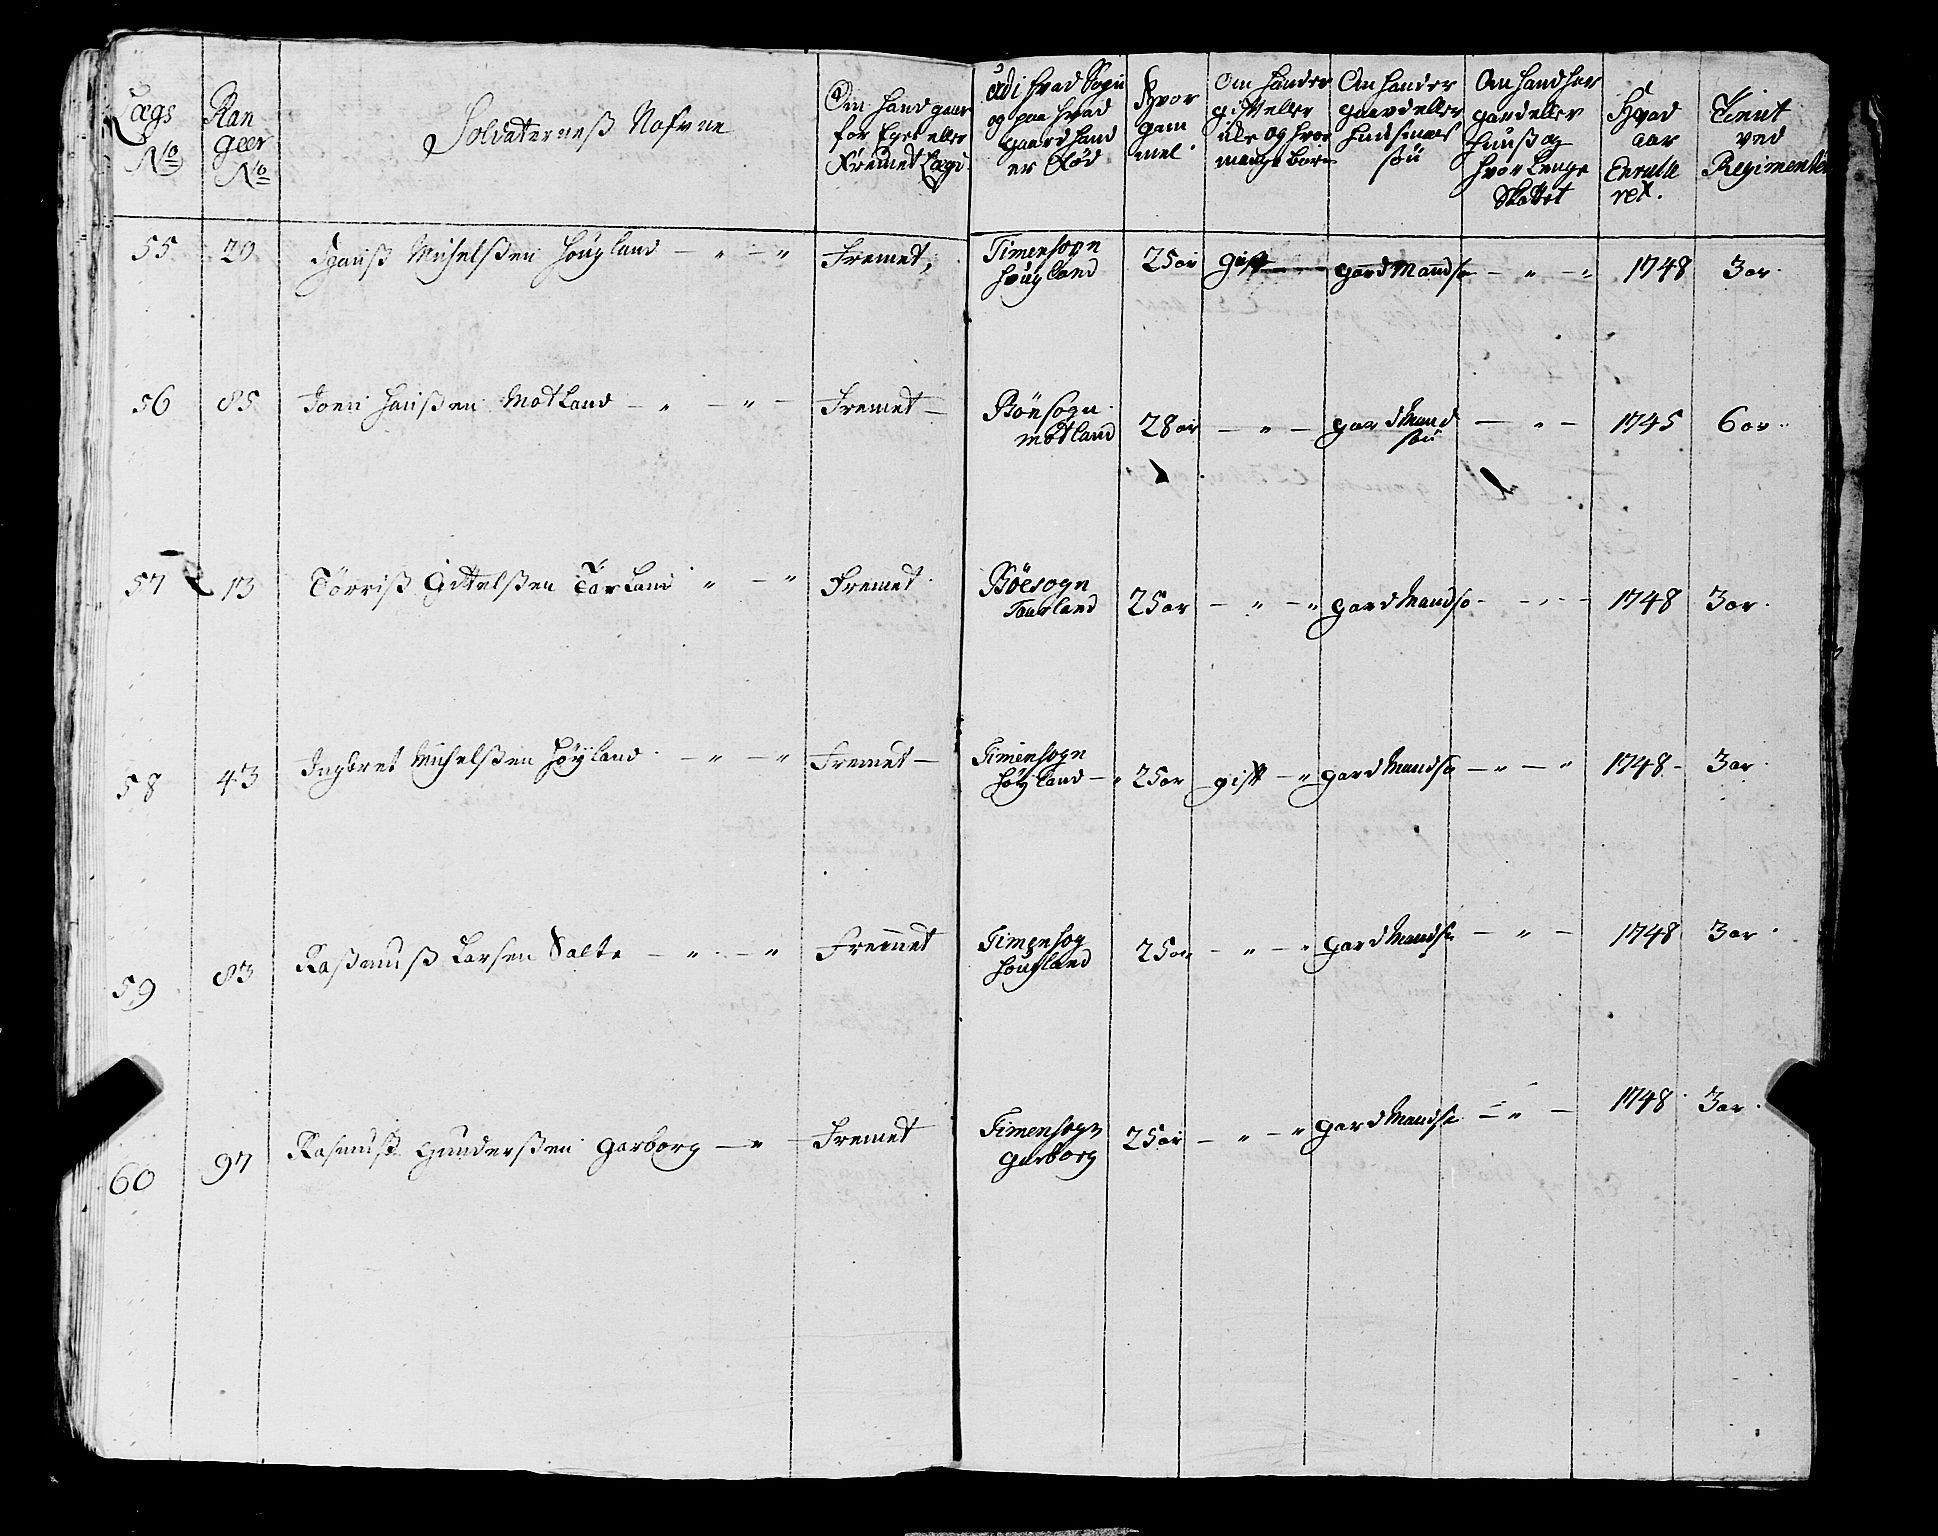 Lægs No
Ran geer No
Soldaterneß Nafvne
Om hand gaar for Eget eller Fremet Lægd
og paa hvad gaard hand er Fød
Hvor gam mel
Om hand er gift eller icke og hvor mange børn
Om hand er gaard eller huusmans søn
Om hand har gaard eller huuß og hvor lenge
Hvad aar Enrulle ret.
Tient ved Regimentet
55 20 Hanß Michelßen Høyland — " — " Fremet, Timensogn Høyland 25 aar gift gard Mandsø — " — " 1748 3 ar.
56 85 Joen Hanßen Motland — " — " — Fremet — Böesogn motland 28 ar — " — gard Mand søn — " — 1745 6 ar.
57 13 Törriß Gittelßen Tarland " — " Fremet. Böesogn Taarland 25 ar — " — " gard Mandsø — " — 1748 3 ar.
58 43 Ingbret Michelßen Høyland — " — " Fremet — Timensogn Høyland — " 25 ar gift — " gard Mandsø — " — " 1748 — 3 ar
59 83 Raßmuß Larsen Salte — " — " Fremmet Timensog Høyland 25 ar — " — " gard Mandsø — " — 1748 3 ar.
60 97 Rasmuß Gunderßen Garborg — " — Fremet Timensogn garborg 25 ar — " — " gard Mandsø — " — 1748 3 ar.